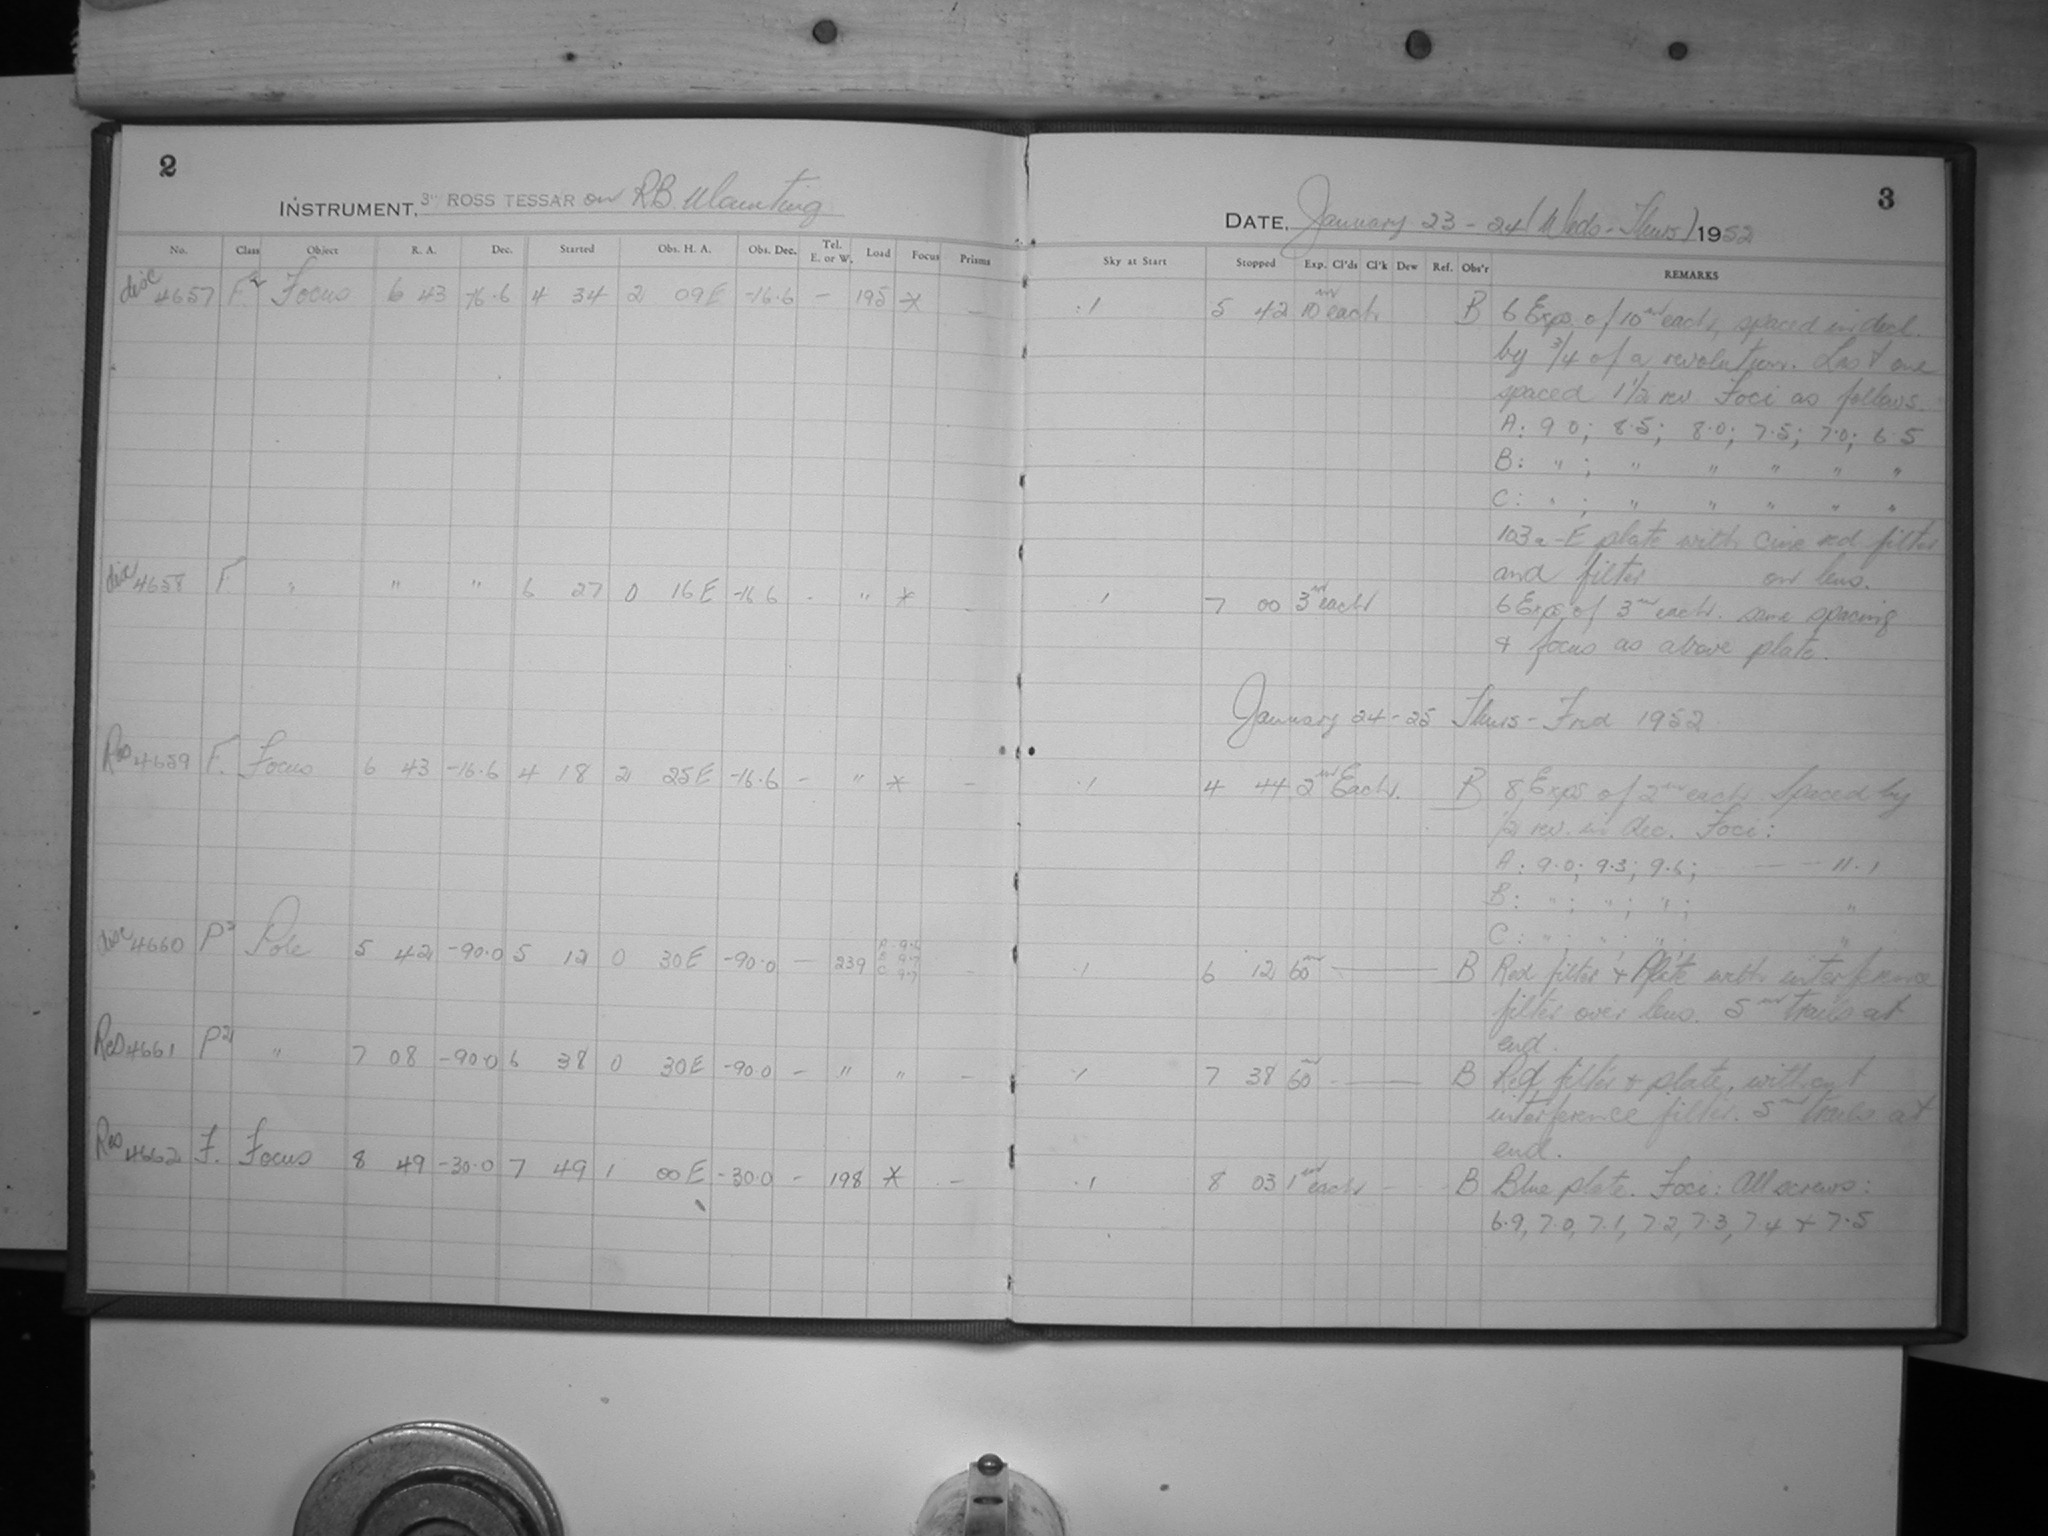 2
INSTRUMENT, 3" ROSS TESSAR on RB Mounting
No. Class Object R. A. Dec. Started Obs. H. A. Obs. Dec. Tel. E. or W. Load Focus Prisms
disc 4657 F Focus 6 43 -16.6 4 34 2 09E -16.6 - 195 * -
disc 4658 F. " " " 6 27 0 16E -16.6 - " * -
Res 4659 F. Focus 6 43 -16.6 4 18 2 25E -16.6 - " * -
disc 4660 P2 Pole 5 42 -90.0 5 12 0 30E -90.0 - 239 A 9.6 B 9.7 C 9.7 -
Res 4661 P2 " 7 08 -90.0 6 38 0 30E -90.0 - " " -
Res 4662 F. Focus 8 49 -30.0 7 49 1 00E -30.0 - 198 * -
3
DATE, January 23-24 (Weds-Thurs) 1952
Sky at Start Stopped Exp. Cl'ds Cl'k Dew Ref. Obs'r REMARKS
.1 5 42 10m each B 6 Exps of 10m each, spaced in decl.
by 3/4 of a revolution. Last one
spaced 1 1/2 rev Foci as follows.
A: 9.0; 8.5; 8.0; 7.5; 7.0; 6.5
B: " ; " " " " "
C: " ; " " " " "
103a-E plate with Cine red filter
and filter on lens.
.1 7 00 3m each 6 Exps of 3m each. same spacing
& focus as above plate.
January 24-25 Thurs-Frid 1952
.1 4 44 2m Each. B 8 Exps of 2m each Spaced by
1/2 rev. in dec. Foci:
A: 9.0; 9.3; 9.6; — — 11.1
B: " ; " ; " ; "
C: " ; " ; " ; "
.1 6 12 60m — B Red filter & Plate with interference
filter over lens. 5m trails at
end.
.1 7 38 60m — B Red filter & plate, without
interference filter. 5m trails at
end.
.1 8 03 1m each - B Blue plate. Foci: All screws:
6.9, 7.0, 7.1, 7.2, 7.3, 7.4 & 7.5